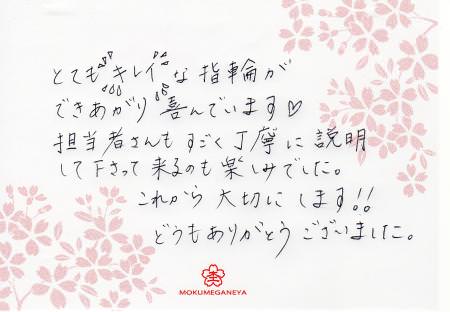 とても キレイ な 指輪が
できあがり 喜んでいます♡
担当者さんも すごく 丁寧に 説明
して下さって 来るのも 楽しみでした。
これから 大切に します!!
どうもありがとう ございました。
MOKUMEGANEYA